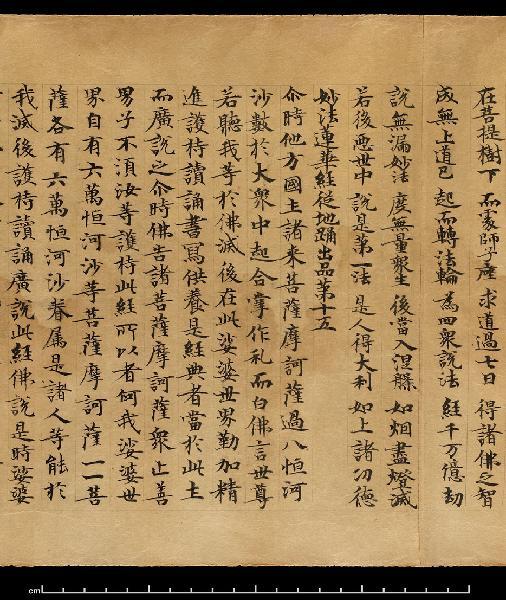 在菩提樹下 而處師子座 求道過七日 得諸佛之智
成無上道已 起而轉法輪 為四衆說法 經千万億劫
說無漏妙法 度無量衆生 後當入涅槃 如烟盡燈滅
若後惡世中 說是第一法 是人得大利 如上諸功德
妙法蓮華經從地踊出品第十五
尒時他方國土諸來菩薩摩訶薩過八恒河
沙數於大衆中起合掌作礼而白佛言世尊
若聽我等於佛滅後在此娑婆世界勤加精
進護持讀誦書寫供養是經典者當於此土
而廣說之尒時佛告諸菩薩摩訶薩衆止善
男子不湏汝等護持此經所以者何我娑婆世
界自有六萬恒河沙等菩薩摩訶薩一一菩
薩各有六萬恒河沙眷属是諸人等能於
我滅後護持讀誦廣說此經佛說是時娑婆
cm